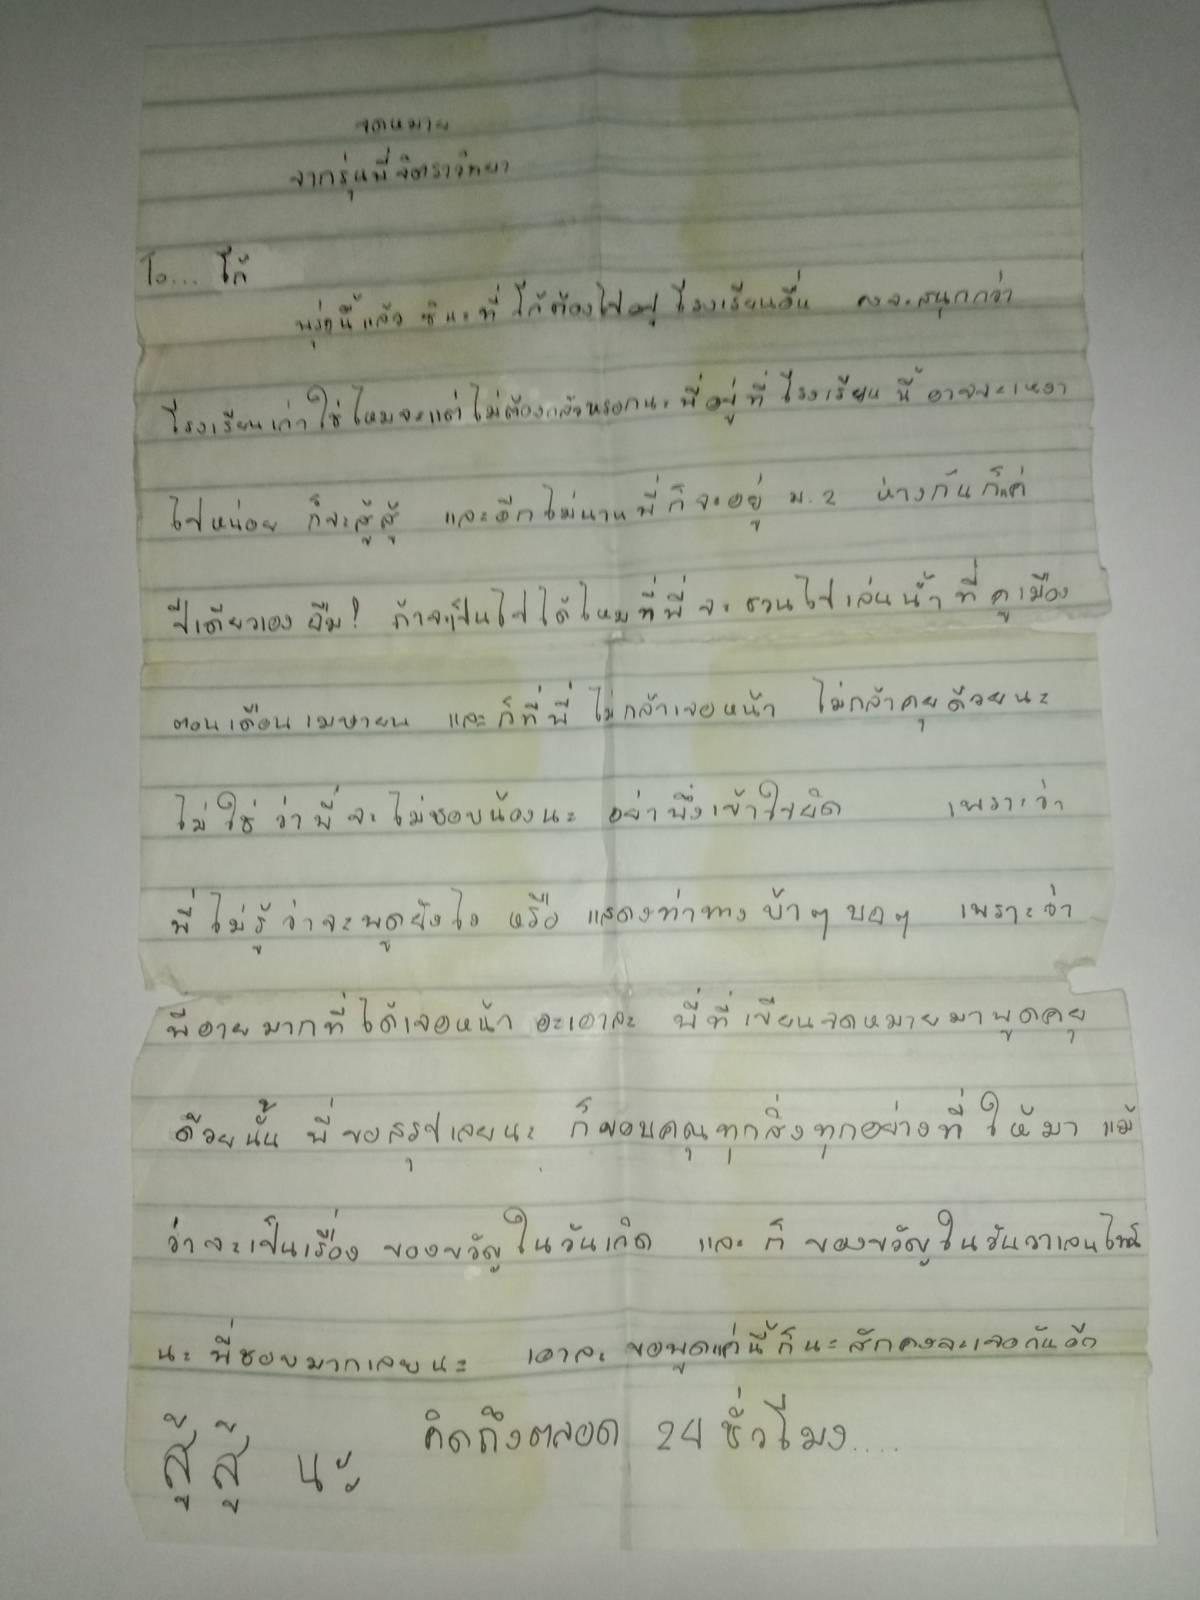 จดหมาย
จากรุ่นพี่จิตราวิทยา
To... โก้
พรุ่งนี้แล้วซินะที่โก้ต้องไปอยู่โรงเรียนอื่น คงจะสนุกกว่า
โรงเรียนเก่าใช่ไหมจะแต่ไม่ต้องกลัวหรอกนะพี่อยู่ที่โรงเรียนนี้อาจจะเหงา
ไปหน่อย ก็จะสู้สู้ และอีกไม่นานพี่ก็จะอยู่ ม.2 ห่างกันก็แค่
ปีเดียวเอง ยิม! ถ้าจะเป็นไปได้ไหมที่พี่จะชวนไปเล่นน้ำที่คูเมือง
ตอนเดือนเมษายน และก็ที่พี่ไม่กล้าเจอหน้า ไม่กล้าคุยด้วยนะ
ไม่ใช่ว่าพี่จะไม่ชอบน้องนะ อย่าพึ่งเข้าใจผิด เพราะว่า
พี่ไม่รู้ว่าจะพูดยังไง หรือ แสดงท่าทางบ้าๆบอๆ เพราะว่า
พี่อายมากที่ได้เจอหน้า อะเอาละ พี่ที่เขียนจดหมายมาพูดคุย
ด้วยนั้น พี่ขอสรุปเลยนะ ก็ขอบคุณทุกสิ่งทุกอย่างที่ให้มา แม้
ว่าจะเป็นเรื่อง ของขวัญในวันเกิด และ ก็ ของขวัญในวันวาเลนไทน์
นะ พี่ชอบมากเลยนะ เอาละ ขอพูดแค่นี้ก็นะสักคงจะเจอกันอีก
สู้ สู้ นะ คิดถึงตลอด 24 ชั่วโมง....